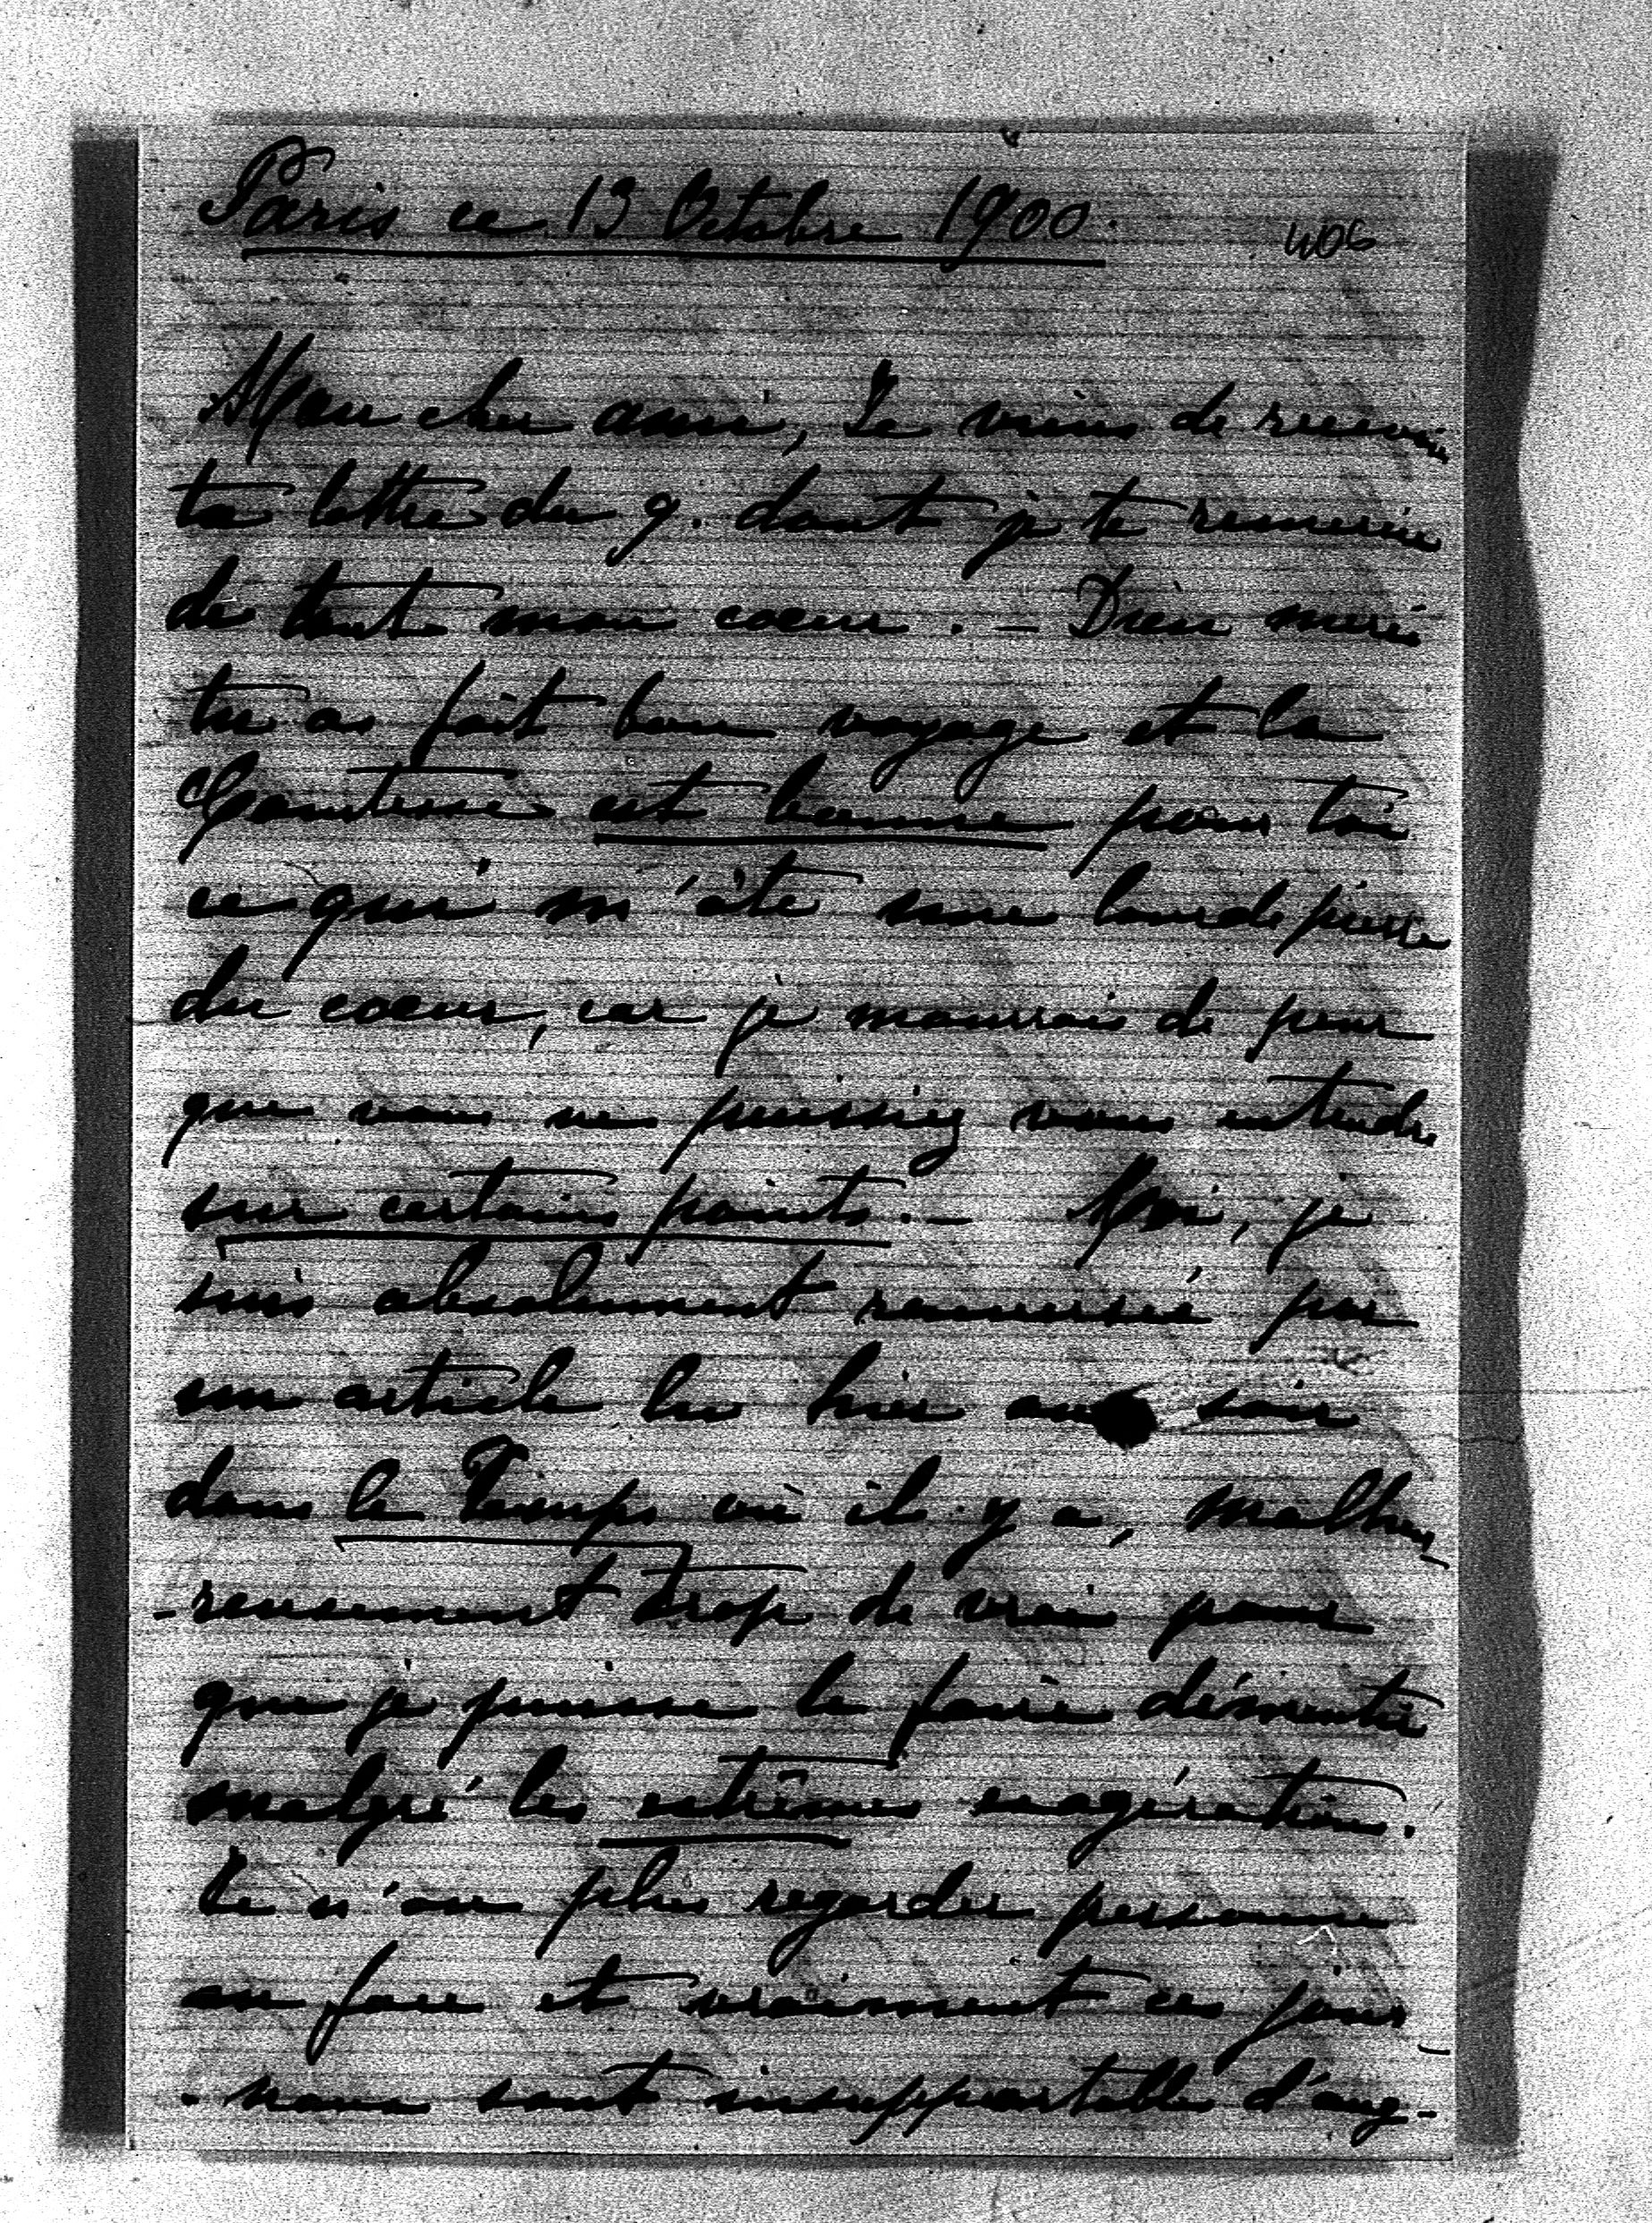 Paris ce 13 Octobre 1900.
406
Mon cher ami, Je viens de recevoir
ta lettre du 9. dont je te remercie
de tout mon coeur. – Dieu merci
tu as fait bon voyage et la
Comtesse est bonne pour toi
ce qui m'ôte une lourde pierre
du coeur, car je mourrais de peur
que vous ne puissiez vous entendre
sur certains points. – Moi, je
suis absolument renversé par
un article lu hier au soir
dans le Temps où il y a, malheu-
-reusement trop de vrai pour
que je puisse le faire démentir
malgré les extrêmes exagérations.
Je n'ose plus regarder personne
en face et vraiment ces jour-
-naux sont insupportables d'aug-